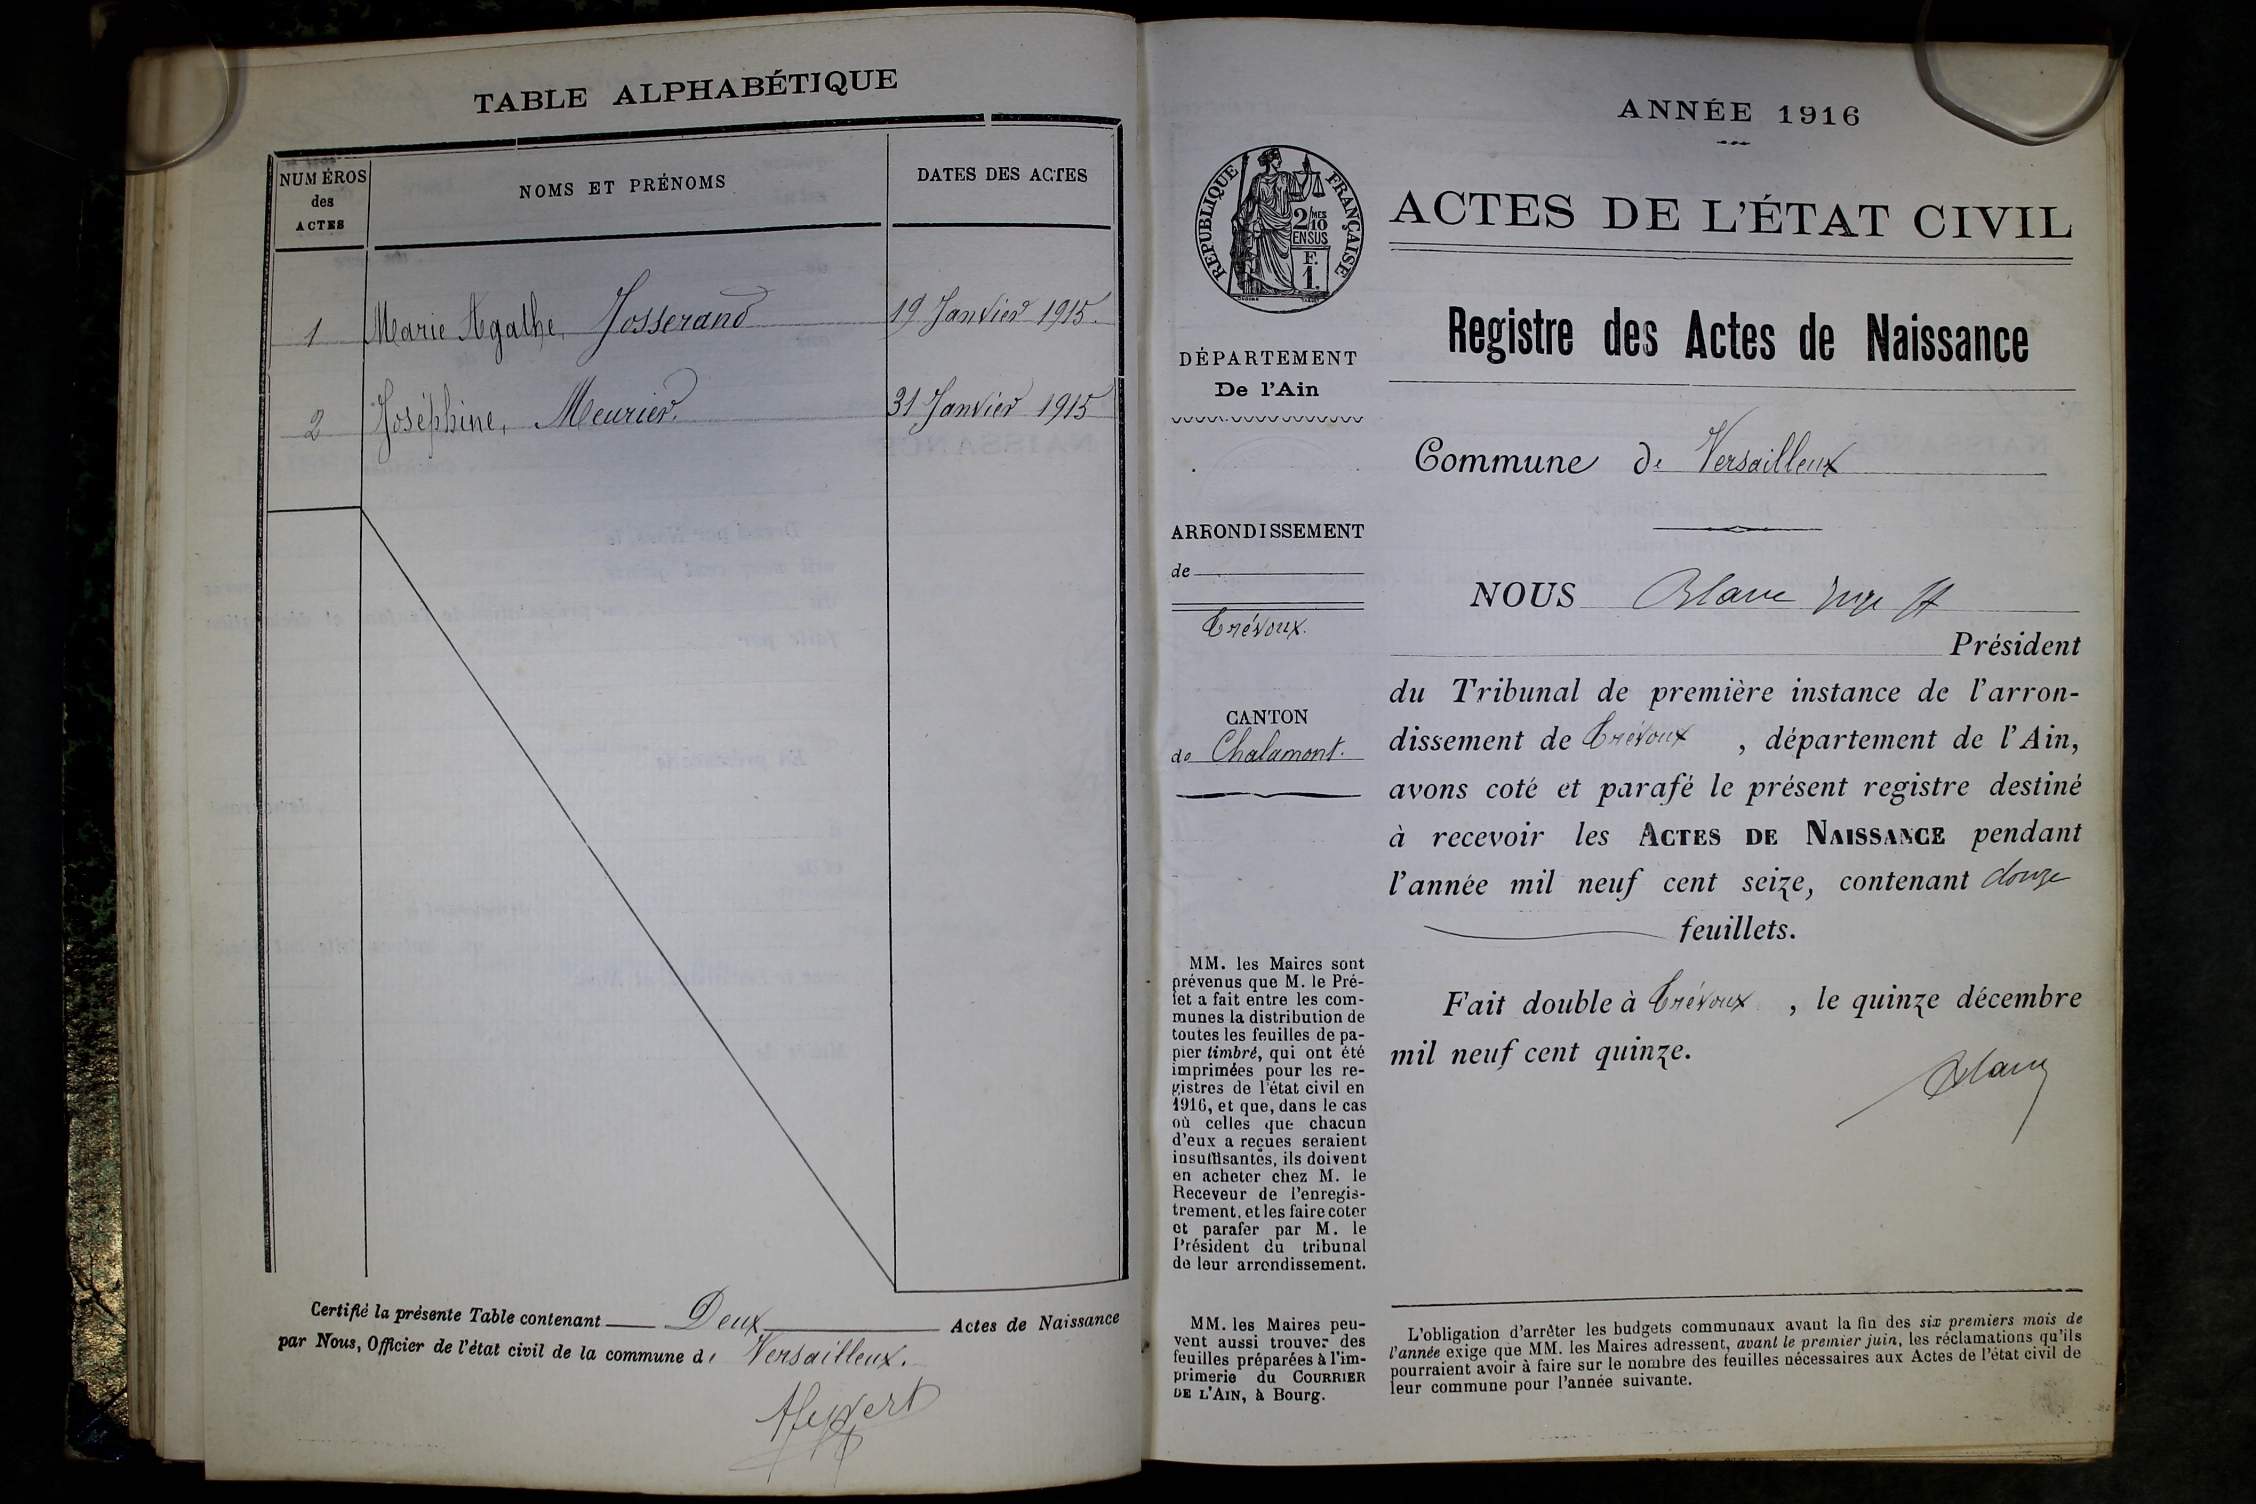 TABLE ALPHABÉTIQUE
NUMÉROS
des
ACTES
NOMS ET PRÉNOMS
DATES DES ACTES
1 Marie Agathe, Josserand 19 Janvier 1915.
2 Joséphine, Meurier. 31 Janvier 1915
Certifié la présente Table contenant Deux Actes de Naissance
par Nous, Officier de l'état civil de la commune de Versailleux.
ANNÉE 1916
RÉPUBLIQUE FRANÇAISE
2/MES
10
EN SUS
F.
1.
ACTES DE L'ÉTAT CIVIL
Registre des Actes de Naissance
DÉPARTEMENT
De l'Ain
ARRONDISSEMENT
de
Trévoux.
CANTON
de Chalamont.
MM. les Maires sont
prévenus que M. le Pré-
fet a fait entre les com-
munes la distribution de
toutes les feuilles de pa-
pier timbré, qui ont été
imprimées pour les re-
gistres de l'état civil en
1916, et que, dans le cas
où celles que chacun
d'eux a reçues seraient
insuffisantes, ils doivent
en acheter chez M. le
Receveur de l'enregis-
trement, et les faire coter
et parafer par M. le
Président du tribunal
de leur arrondissement.
MM. les Maires peu-
vent aussi trouver des
feuilles préparées à l'im-
primerie du COURRIER
DE L'AIN, à Bourg.
Commune de Versailleux
NOUS Blanc
Président
du Tribunal de première instance de l'arron-
dissement de Trévoux, département de l'Ain,
avons coté et parafé le présent registre destiné
à recevoir les ACTES DE NAISSANCE pendant
l'année mil neuf cent seize, contenant douze
feuillets.
Fait double à Trévoux, le quinze décembre
mil neuf cent quinze.
Blanc
L'obligation d'arrêter les budgets communaux avant la fin des six premiers mois de
l'année exige que MM. les Maires adressent, avant le premier juin, les réclamations qu'ils
pourraient avoir à faire sur le nombre des feuilles nécessaires aux Actes de l'état civil de
leur commune pour l'année suivante.